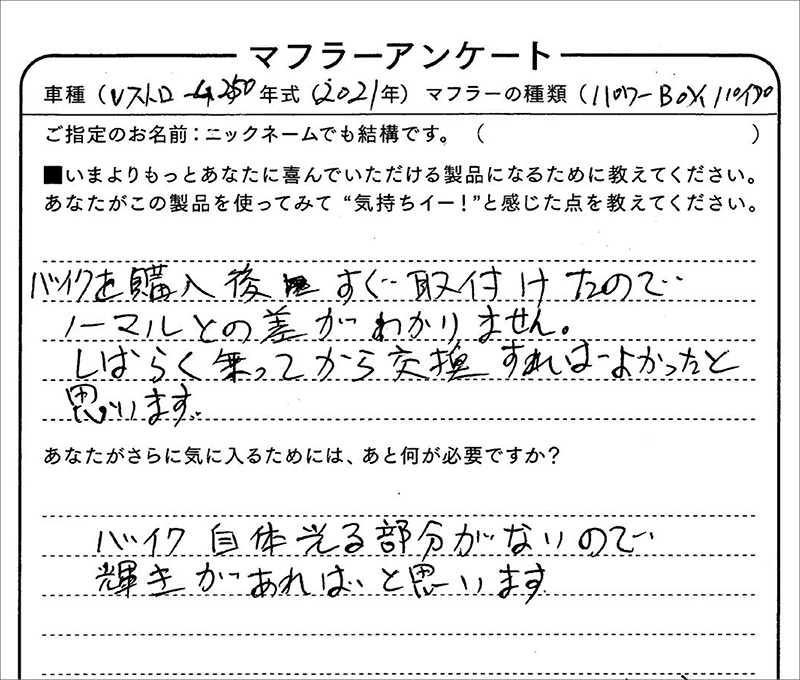 マフラーアンケート
車種（Vストローム250年式（2021年）マフラーの種類（パワーBOXパイプ
ご指定のお名前：ニックネームでも結構です。（　）
■いまよりもっとあなたに喜んでいただける製品になるために教えてください。
あなたがこの製品を使ってみて“気持ちイー！”と感じた点を教えてください。
バイクを購入後すぐ取付けたので
ノーマルとの差がわかりません。
しばらく乗ってから交換すればよかったと
思います。
あなたがさらに気に入るためには、あと何が必要ですか？
バイク自体光る部分がないので
輝きがあればと思います